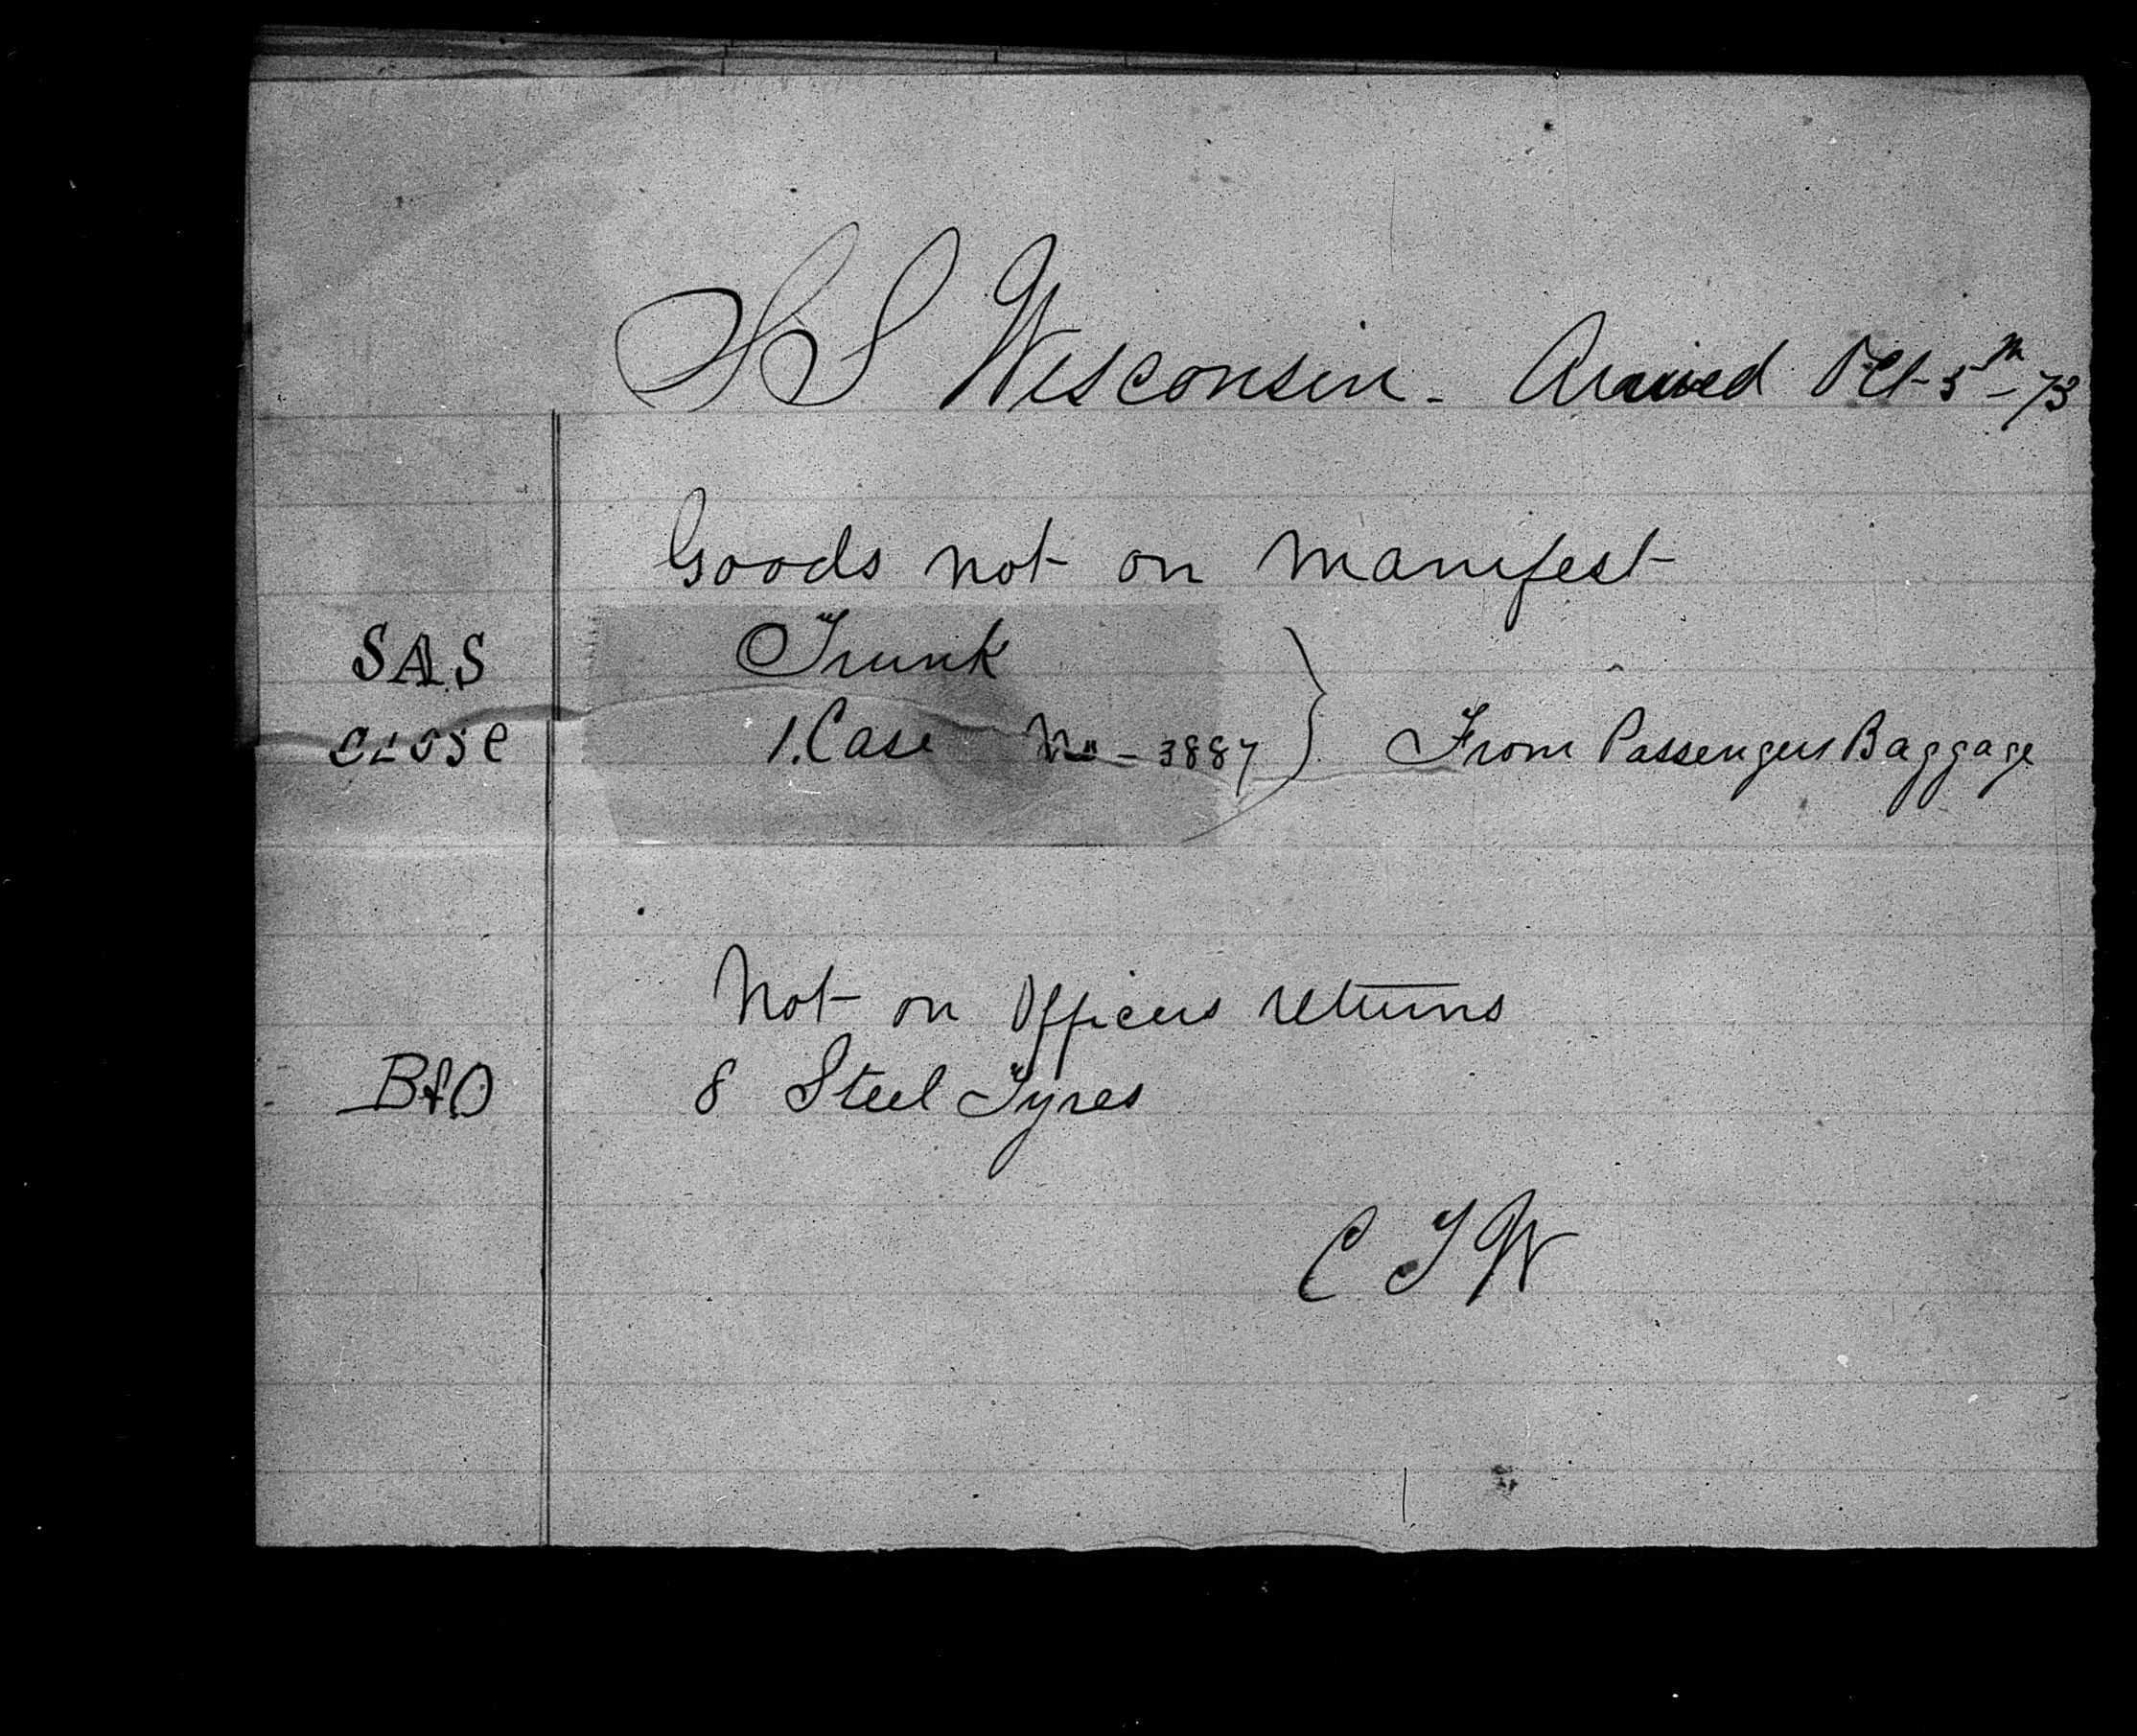 SS Wisconsin - Arrived Oct 5th - 73
Goods not on manifest
SAS Trunk
CLOSE 1. Case No - 3887 } From Passengers Baggage
Not on Officers returns
B&O 8 Steel Tyres
C T W